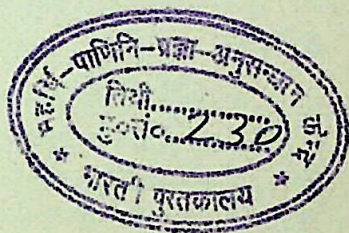 महर्षि-पाणिनि-प्रज्ञा-अनुसन्धान केन्द्र
तिथी............
पु०सं०...230
* भारती पुस्तकालय *